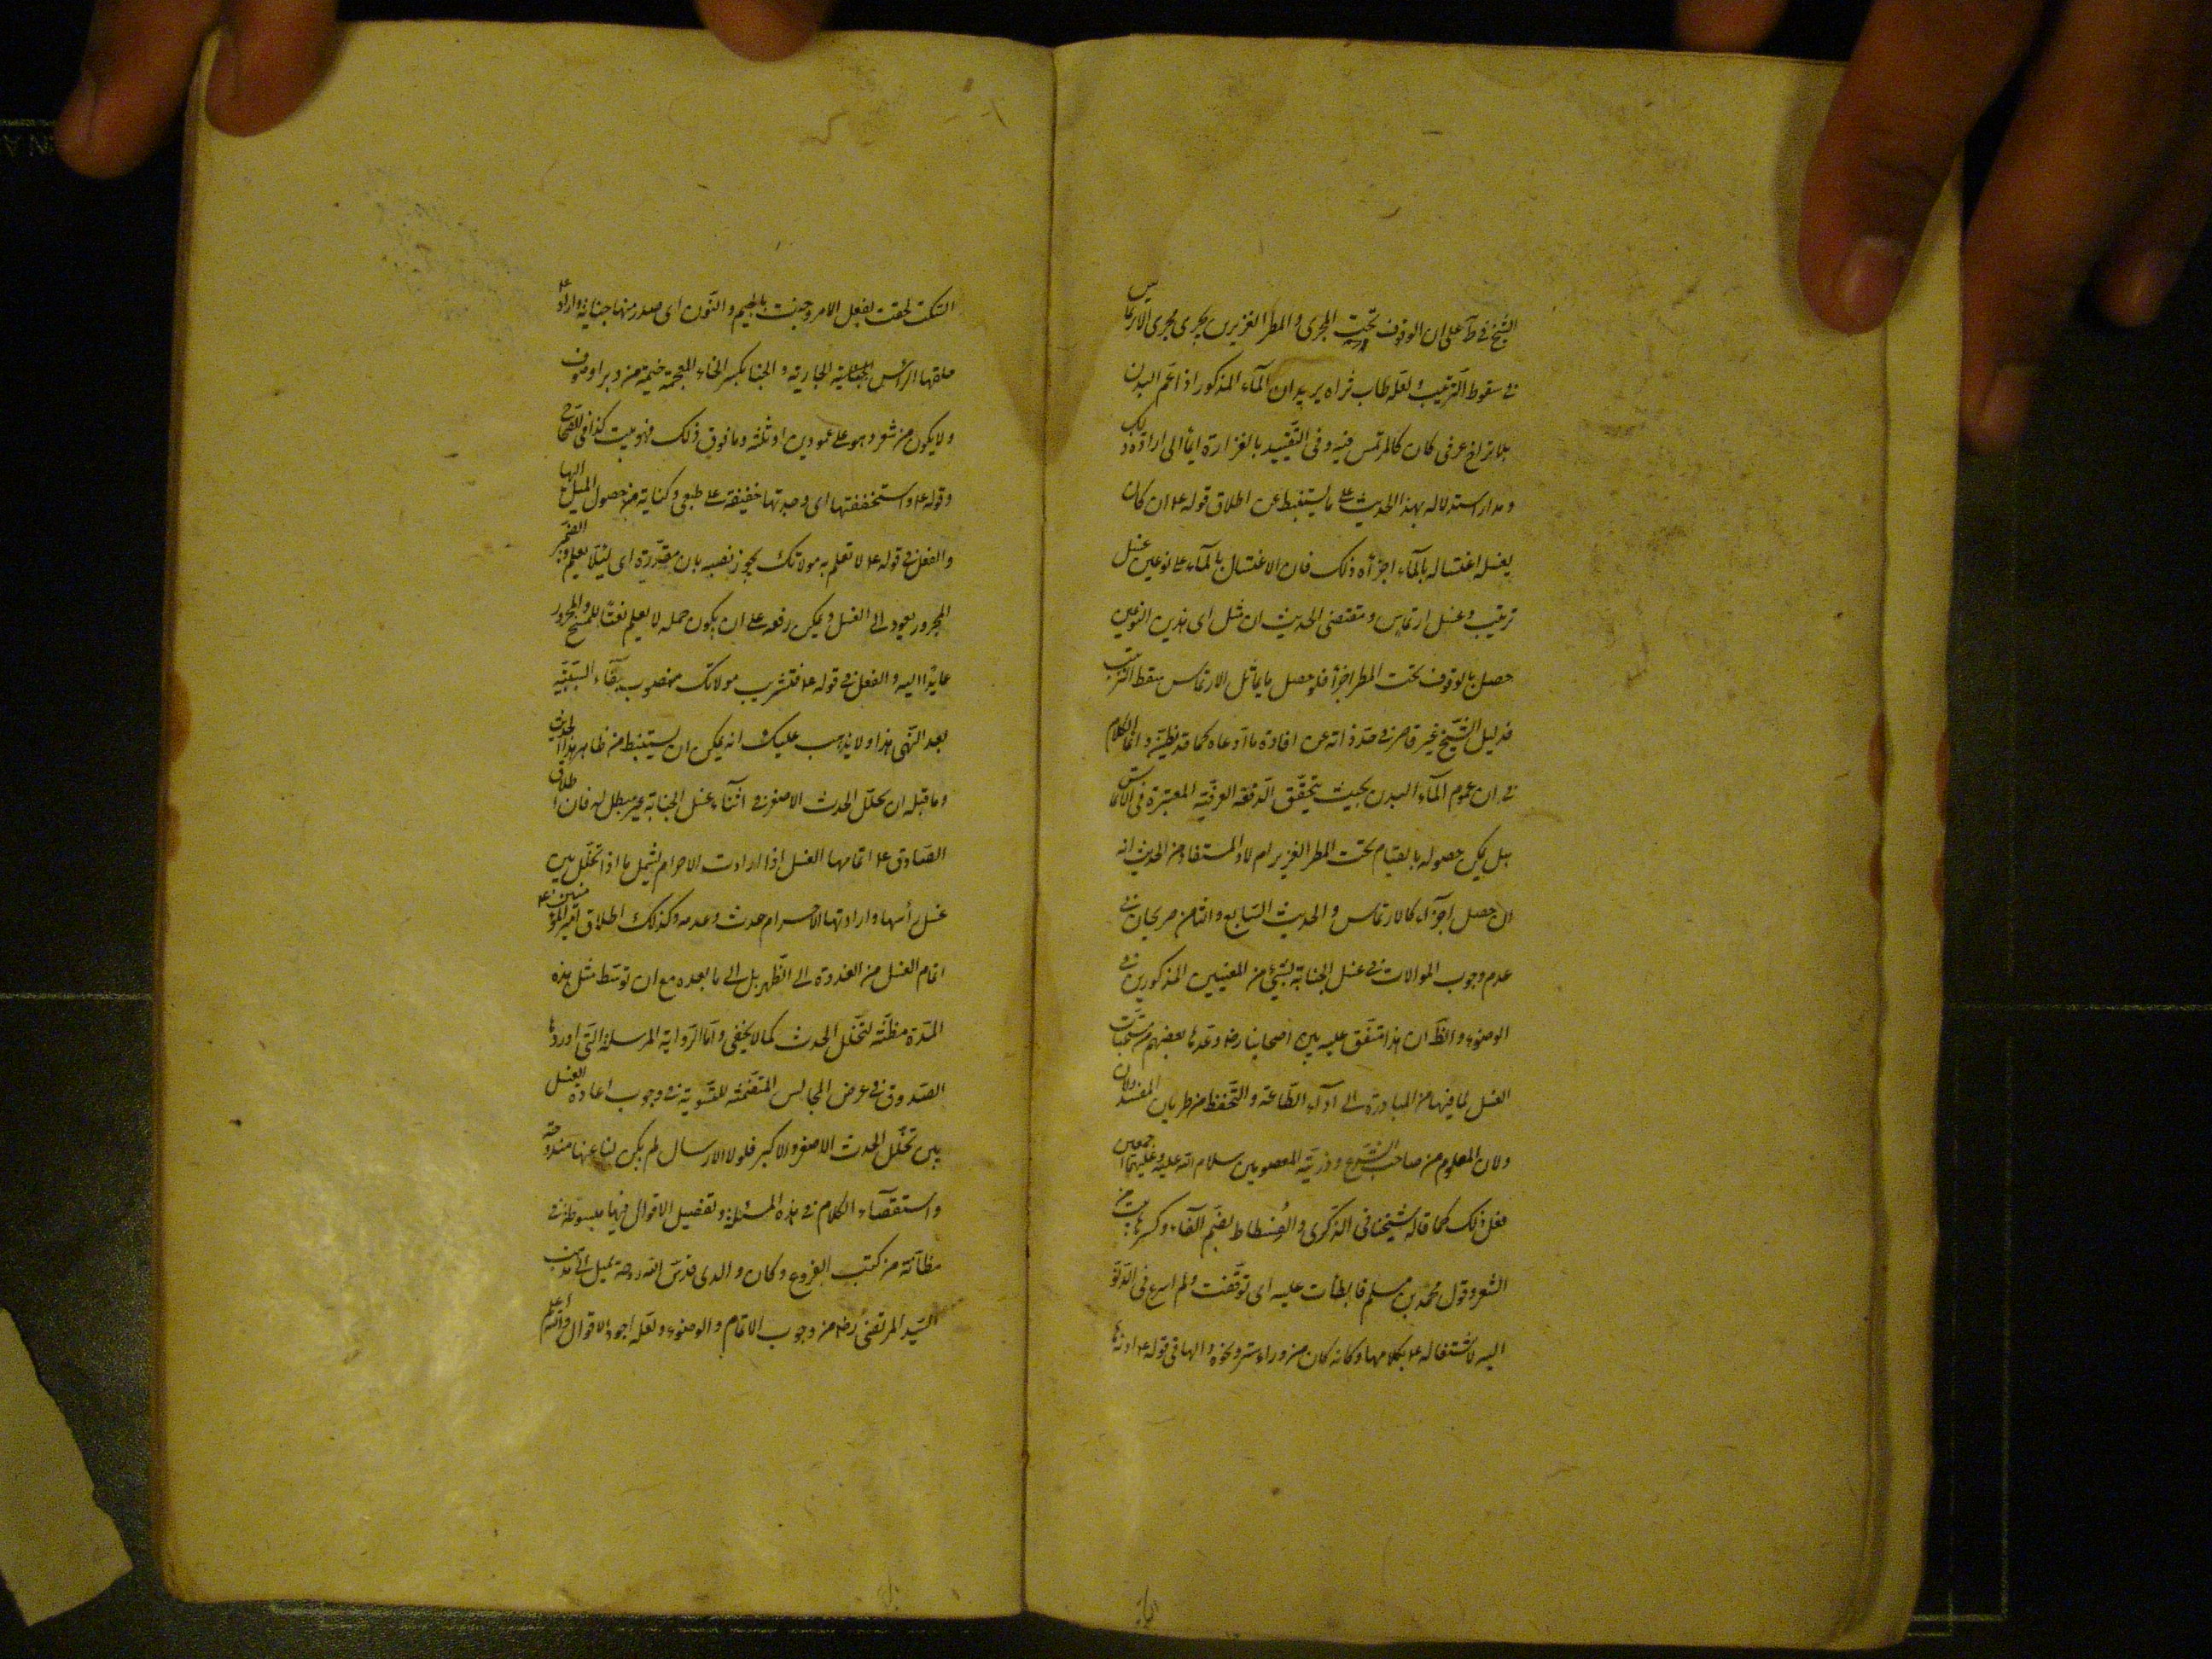 الشيخ في ط على ان الوقوف تحت المجرى والمطر الغزيرين يجرى مجرى الارتماس
في سقوط الترتيب ولعله طاب ثراه يريد ان الماء المذكور اذا عم البدن
بلا تراخ عرفي كان كالمرتمس فيه وفي التقييد بالغزارة ايماء الى ارادة ذلك
ومدار استدلاله بهذا الحديث على ما يستنبط من اطلاق قوله ع ان كان
يغسله اغتساله بالماء اجزأه ذلك فان الاغتسال بالماء على نوعين غسل
ترتيب وغسل ارتماس ومقتضى الحديث ان مثل اى هذين النوعين
حصل بالوقوف تحت المطر اجزأ فلو حصل ما يماثل الارتماس سقط الترتيب
فدليل الشيخ غير قاصر في حد ذاته عن افادة ما ادعاه كما قد يظن وانما الكلام
في ان عموم الماء البدن بحيث يتحقق الدفعة العرفية المعتبرة في الارتماس
هل يمكن حصوله بالقيام تحت المطر الغزير ام لا والمستفاد من الحديث انه
ان حصل اجزاء كالارتماس والحديث السابع والثامن صريحان في
عدم وجوب الموالات في غسل الجنابة بشيء من المعنيين المذكورين في
الوضوء والظ ان هذا متفق عليه بين اصحابنا رض وعدها بعضهم من مستحبات
الغسل لما فيها من المبادرة الى اداء الطاعة والتحفظ من طريان المفسد ولان
ولان المعلوم من صاحب الشرع وذريته المعصومين سلام الله عليه وعليهم اجمعين
فعل ذلك كما قاله شيخنا في الذكرى والفسطاط بضم الفاء وكسرها بيت من
الشعر وقول محمد بن مسلم فابطأت عليه اى توقفت ولم اسرع في الدنو
اليه لاشتغاله ع بكلامها وكانه كان من وراء ستر ونحوه والها في قوله ع ادنه ها
السكت لحقت لفعل الامر وجنت بالجيم والنون اى صدر منها جناية واراد ع
حلقها الرأس الجارية والخبا بكسر الخاء المعجمة خيمة من وبر او صوف
ولا يكون من شعر وهو على عمودين او ثلثة وما فوق ذلك فهو بيت كذا في الصحاح
وقوله ع واستخففتها اى وجدتها خفيفة على طبعي وكناية عن حصول الميل اليها
والفعل في قوله ع لا تعلم به مولاتك يجوز نصبه بان مقدرة اى لئلا تعلم والضمير
المجرور يعود الى الغسل ويمكن رفعه على ان يكون جملة لا يعلم نعتا للمسح والمجرور
عايدا اليه والفعل في قوله ع فتستريب مولاتك منصوب بفاء السببية
بعد النهى هذا ولا يذهب عليك انه يمكن ان يستنبط من ظاهر هذا الحديث
وما قبله ان تخلل الحدث الاصغر في اثناء غسل الجنابة غير مبطل له فان اطلاق
الصادق ع اتمامها الغسل اذا ارادت الاحرام يشمل ما اذا تخلل بين
غسل رأسها وارادتها الاحرام حدث وعدمه وكذلك اطلاق امير المؤمنين ع
اتمام الغسل من الغدوة الى الظهر بل الى ما بعده مع ان توسط مثل هذه
المدة مظنة لتخلل الحدث كما لا يخفى واما الرواية المرسلة التى اوردها
الصدوق في عرض المجالس المتضمنة للتسوية في وجوب اعادة الغسل
بين تخلل الحدث الاصغر والاكبر فلولا الارسال لم يكن لنا عنها مندوحة
واستقصاء الكلام في هذه المسئلة وتفصيل الاقوال فيها مبسوطة في
مظانه من كتب الفروع وكان والدى قدس الله روحه يميل الى مذهب
السيد المرتضى رض من وجوب الاتمام والوضوء ولعله اجود الاقوال والله اعلم